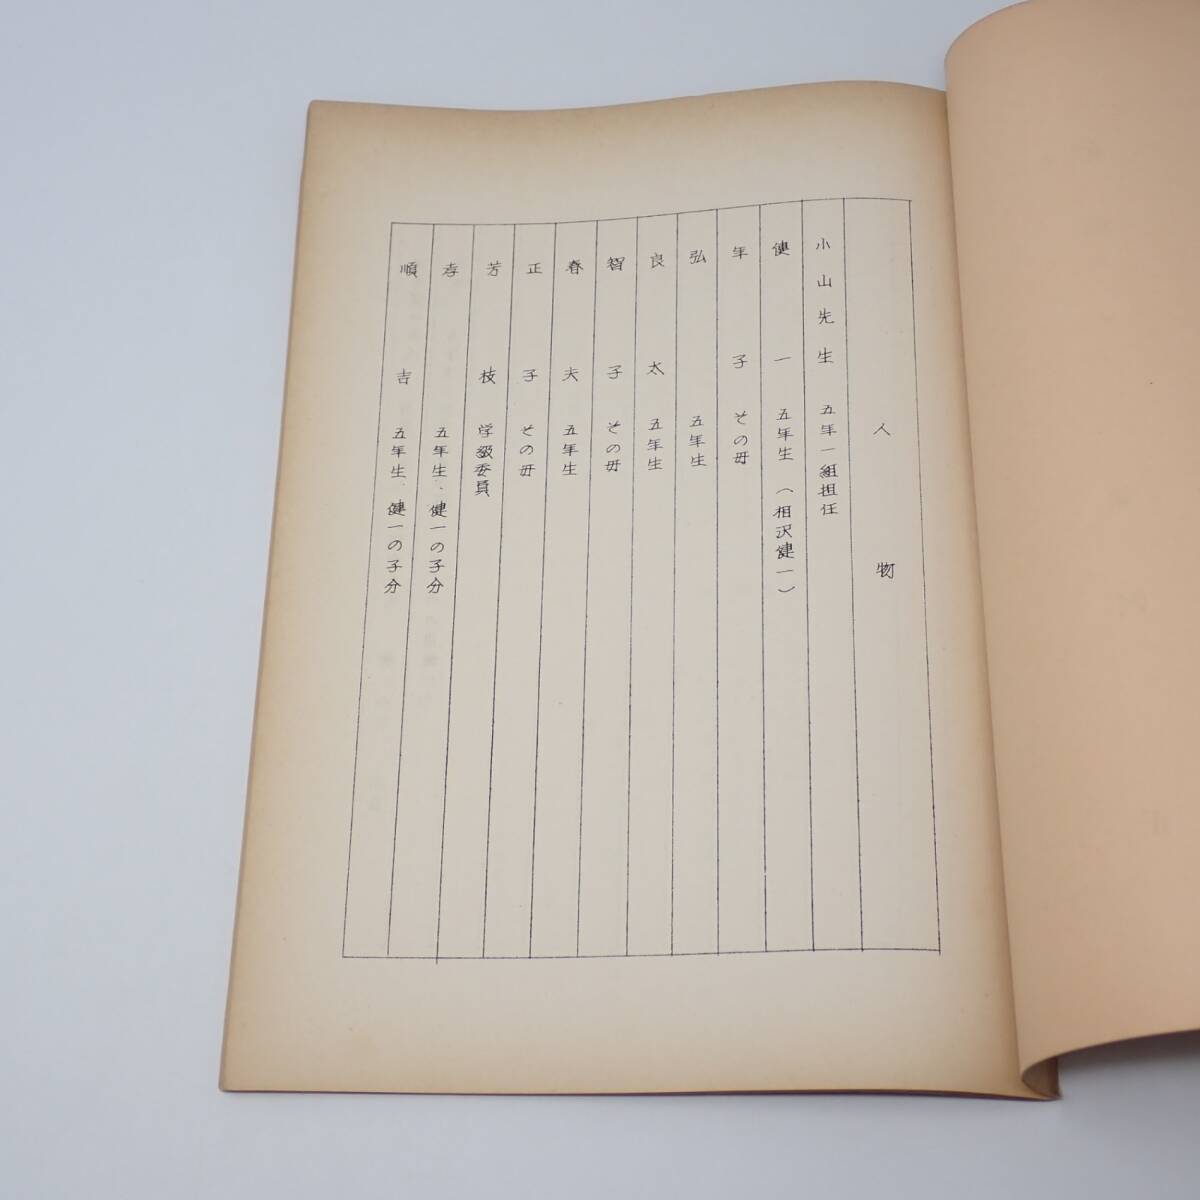 人物
小山先生 五年一組担任
健一 五年生（相沢健一）
年子 その母
弘 五年生
良太 五年生
智子 その母
春夫 五年生
正子 その母
芳枝 学級委員
孝 五年生、健一の子分
順吉 五年生、健一の子分